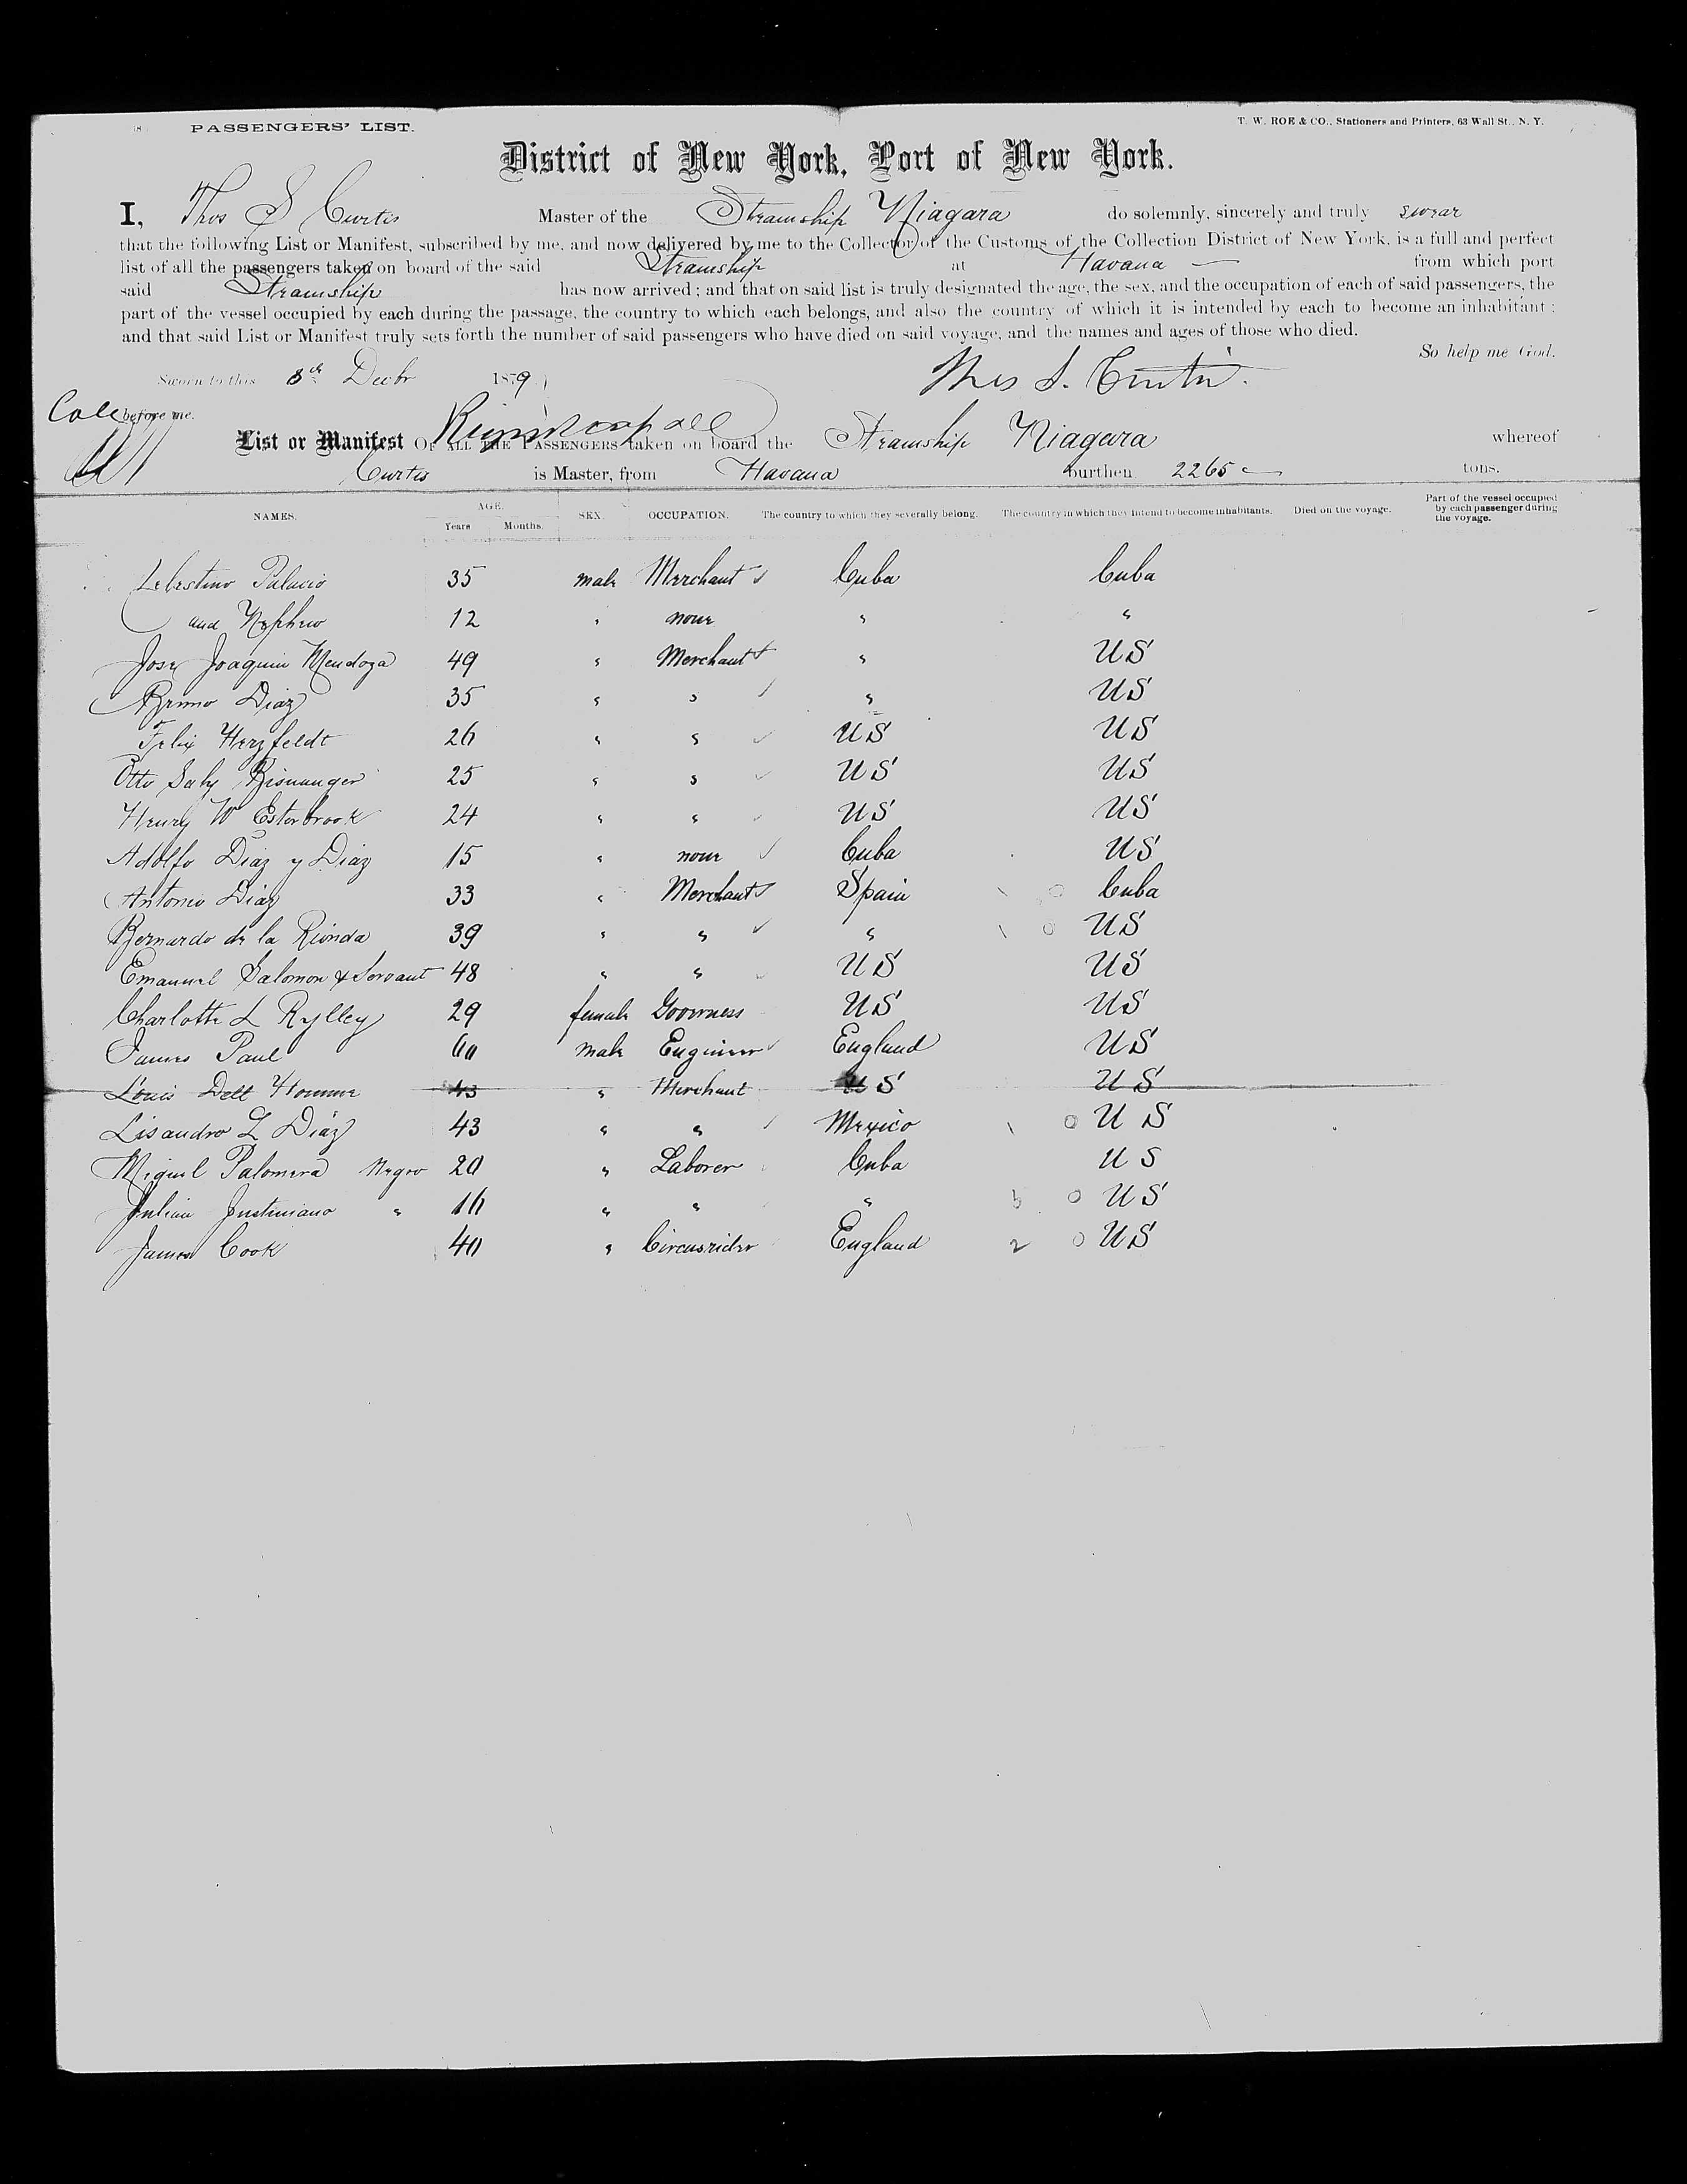 PASSENGERS' LIST.
T. W. ROE & CO., Stationers and Printers, 63 Wall St., N. Y.
District of New York, Port of New York.
I, Thos S Curtis Master of the Steamship Niagara do solemnly, sincerely and truly swear
that the following List or Manifest, subscribed by me, and now delivered by me to the Collector of the Customs of the Collection District of New York, is a full and perfect
list of all the passengers taken on board of the said Steamship at Havana — from which port
said Steamship has now arrived; and that on said list is truly designated the age, the sex, and the occupation of each of said passengers, the
part of the vessel occupied by each during the passage, the country to which each belongs, and also the country of which it is intended by each to become an inhabitant;
and that said List or Manifest truly sets forth the number of said passengers who have died on said voyage, and the names and ages of those who died.
So help me God.
Sworn to this 8th Decbr 1879
Thos S. Curtis.
before me.
List or Manifest OF ALL THE PASSENGERS taken on board the Steamship Niagara whereof
Curtis is Master, from Havana burthen 2265 tons.
NAMES. AGE. Years Months. SEX. OCCUPATION. The country to which they severally belong. The country in which they intend to become inhabitants. Died on the voyage. Part of the vessel occupied by each passenger during the voyage.
Celestino Palacio 35 male Merchant Cuba Cuba
and Nephew 12 " none " "
Jose Joaquin Mendoza 49 " Merchant " US
Bruno Diaz 35 " " " US
Felix Herzfeldt 26 " " US US
Otto 25 " " US US
Henry W Esterbrook 24 " " US US
Adolfo Diaz y Diaz 15 " none Cuba US
Antonio Diaz 33 " Merchant Spain Cuba
Bernardo de la Rionda 39 " " " US
Emanuel Salomon & Servant 48 " " US US
Charlotte L Rylley 29 female Governess US US
James Paul 60 male Engineer England US
Louis Dell Homme 43 " Merchant US US
Lisandro L Diaz 43 " " Mexico US
Miguel Palomera Negro 20 " Laborer Cuba US
Julian Justiniano " 16 " " " US
James Cook 40 " Circusrider England 2 0 US